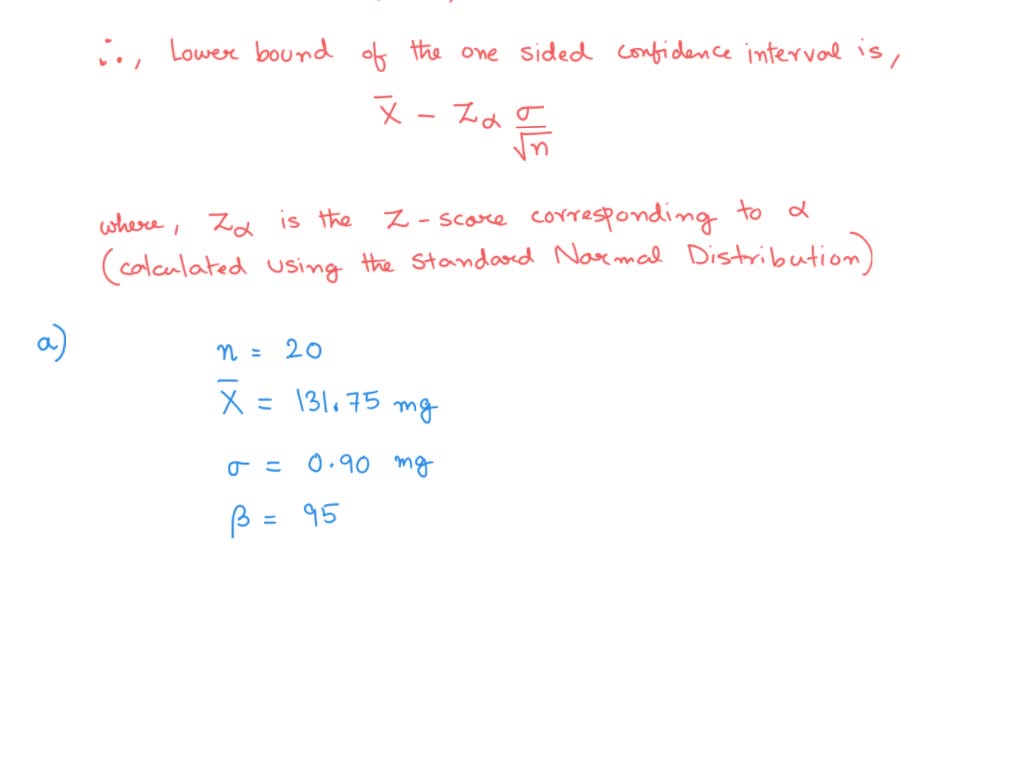 ∴, Lower bound of the one sided confidence interval is,
X̄ - Zα σ/√n
where, Zα is the Z-score corresponding to α
(calculated using the Standard Normal Distribution)
a)
n = 20
X̄ = 131.75 mg
σ = 0.90 mg
β = 95